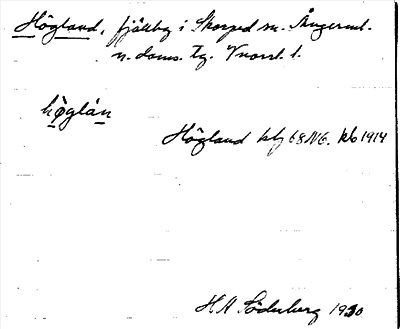 Högland, fjällby i Skorped sn. Ångerml.
n. doms. tg. Vnorrl. l.
hö̀glán
Högland kbg 68NG. kb 1914
H A Söderberg 1930